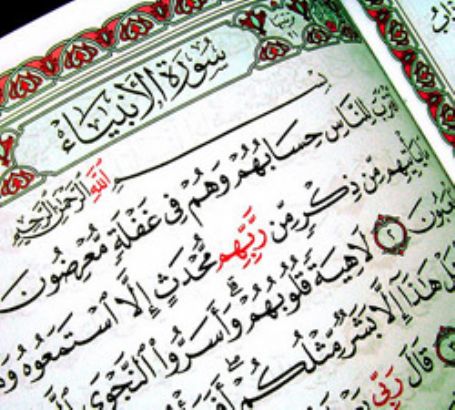 سُورَةُ الأَنبِيَاء
بِسْمِ ٱللَّهِ ٱلرَّحْمَٰنِ ٱلرَّحِيمِ
لِلنَّاسِ حِسَابُهُمْ وَهُمْ فِى غَفْلَةٍ مُّعْرِضُونَ
يَأْتِيهِم مِّن ذِكْرٍ مِّن رَّبِّهِم مُّحْدَثٍ إِلَّا ٱسْتَمَعُوهُ وَ
٢ لَاهِيَةً قُلُوبُهُمْ ۗ وَأَسَرُّوا۟ ٱلنَّجْوَى
هَٰذَآ إِلَّا بَشَرٌ مِّثْلُكُمْ ۖ
قَالَ رَبِّى